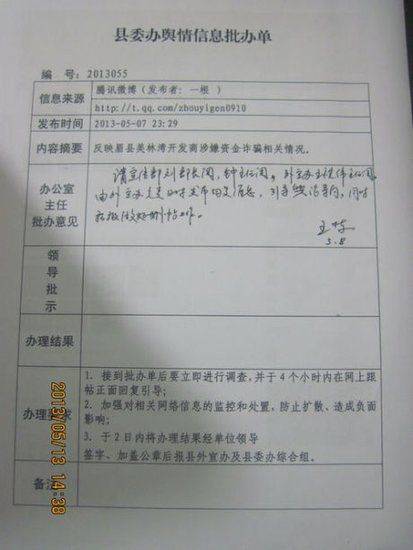 县委办舆情信息批办单
编 号：2013055
信息来源
腾讯微博（发布者：一根 ）
http://t.qq.com/zhouyigen0910
发布时间
2013-05-07 23:29
内容摘要
反映眉县美林湾开发商涉嫌资金诈骗相关情况。
办公室
主任
批办意见
请宣传部刘部长阅，
5.8
领
导
批
示
办理结果
办理要求
1. 接到批办单后要立即进行调查，并于 4 个小时内在网上跟
帖正面回复引导；
2. 加强对相关网络信息的监控和处置，防止扩散、造成负面
影响；
3. 于 2 日内将办理结果经单位领导
签字、加盖公章后报县外宣办及县委办综合组。
备注
2013/05/13 14:38